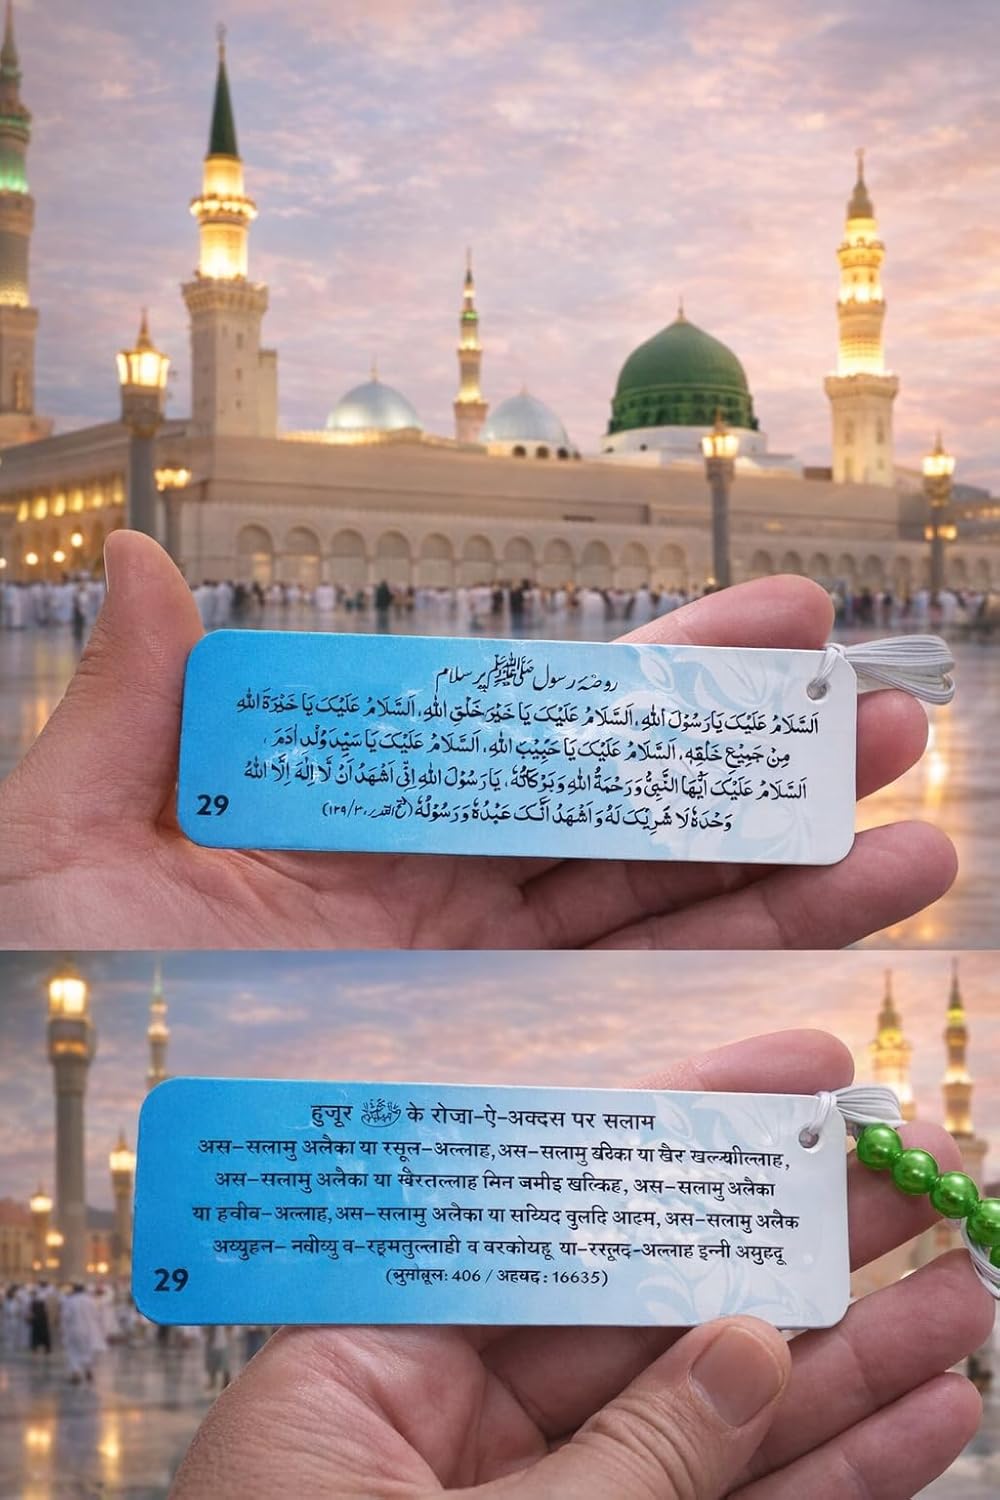 روضۂ رسول ﷺ پر سلام
اَلسَّلَامُ عَلَیْکَ یَارَسُوْلَ اللهِ، اَلسَّلَامُ عَلَیْکَ یَا خَیْرَ خَلْقِ اللهِ، اَلسَّلَامُ عَلَیْکَ یَا خَیْرَةَ اللهِ
مِنْ جَمِیْعِ خَلْقِهٖ، اَلسَّلَامُ عَلَیْکَ یَا حَبِیْبَ اللهِ، اَلسَّلَامُ عَلَیْکَ یَا سَیِّدَ وُلْدِ اٰدَمَ،
اَلسَّلَامُ عَلَیْکَ اَیُّهَا النَّبِیُّ وَرَحْمَةُ اللهِ وَبَرَکَاتُهٗ، یَارَسُوْلَ اللهِ اِنِّیْ اَشْهَدُ اَنْ لَّا اِلٰهَ اِلَّا اللهُ
وَحْدَهٗ لَا شَرِیْکَ لَهٗ وَاَشْهَدُ اَنَّکَ عَبْدُهٗ وَرَسُوْلُهٗ
29
हुजूर ﷺ के रोज़ा-ऐ-अक्दस पर सलाम
अस-सलामु अलैका या रसूल-अल्लाह, अस-सलामु या खैर
अस-सलामु अलैका या मिन जमीइ अस-सलामु अलैका
या हवीव-अल्लाह, अस-सलामु अलैका या सय्यिद वुलदि अस-सलामु अलैक
अय्युहन- नवीय्यु व व या अल्लाह इन्नी
406 / 16635)
29